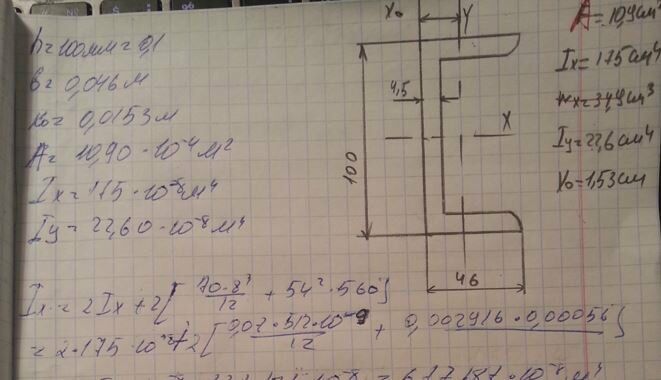 h=100мм=0,1
b=0,046м
x₀=0,0153м
A=10,90·10⁻⁴м²
Ix=175·10⁻⁸м⁴
Iy=22,60·10⁻⁸м⁴
X₀
Y
4,5
X
100
46
A=10,9см²
Ix=175см⁴
Wx=34,9см³
Iy=22,6см⁴
X₀=1,53см
Ix=2Ix+2[70·8³/12+54²·560]
=2·175·10⁻⁸+2[0,07·512·10⁻⁹/12+0,002916·0,00056]